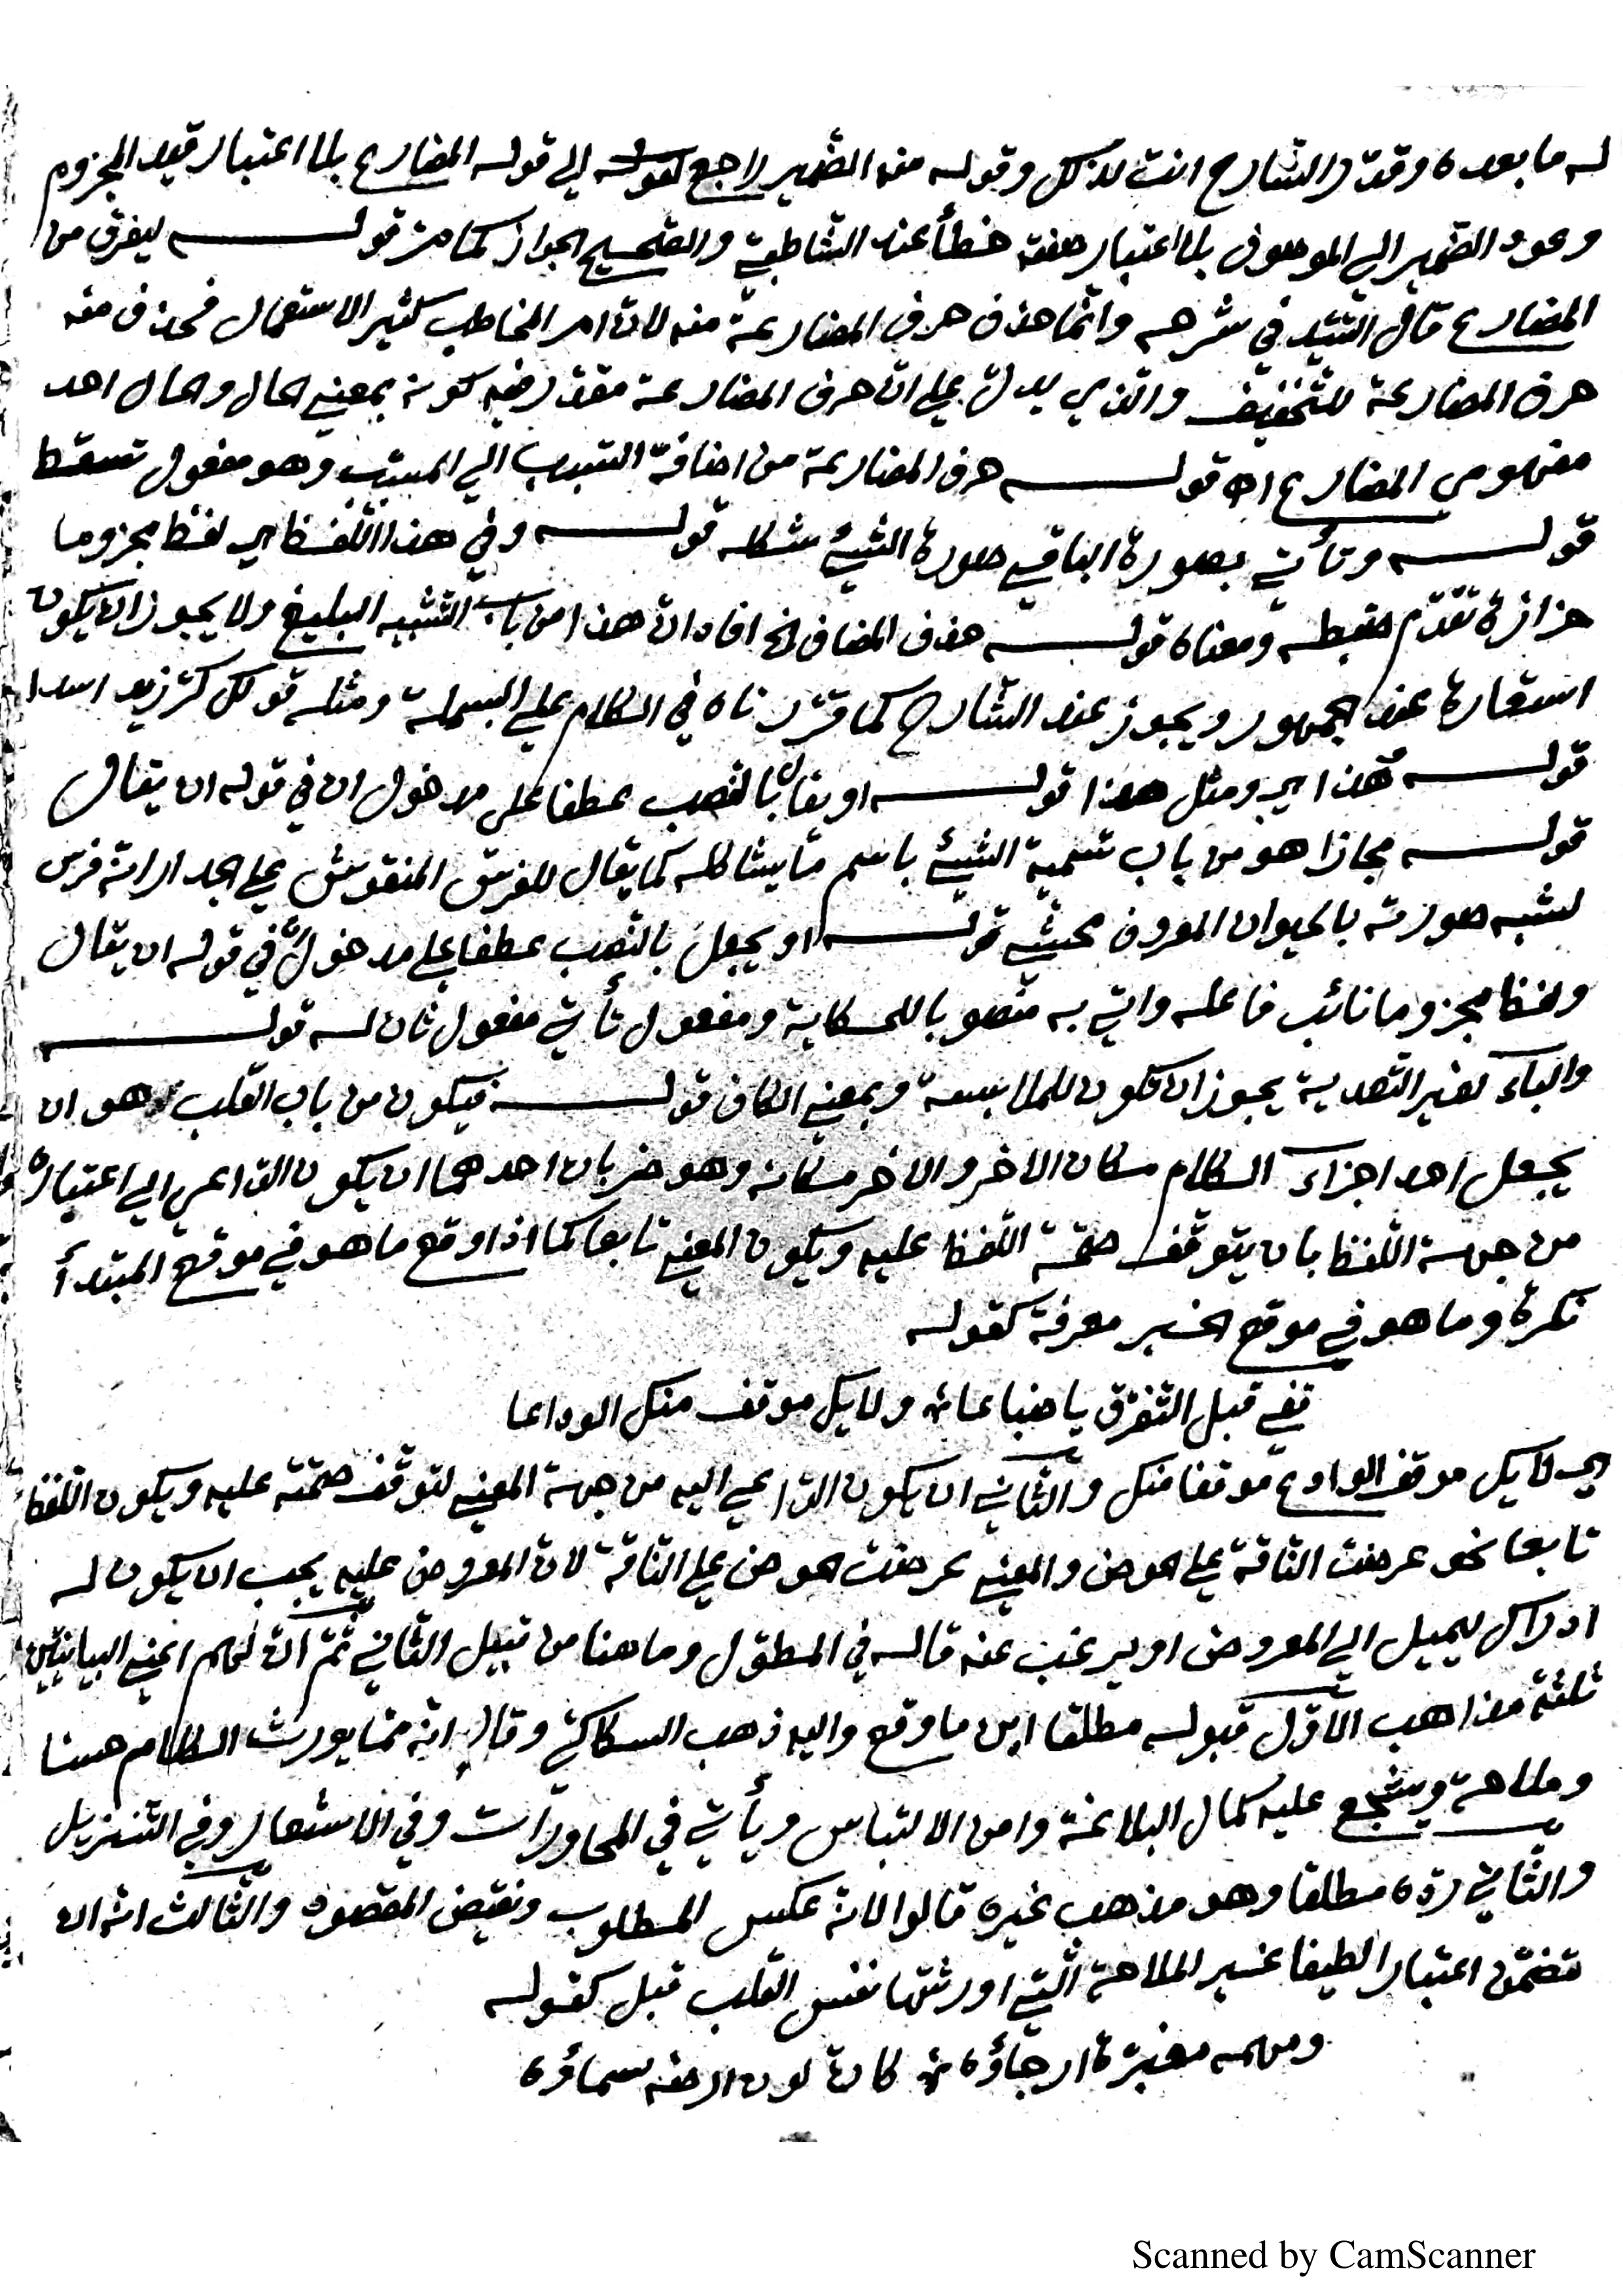 له ما بعده وقدّر الشارح انت لذلك وقوله منه الضمير راجع لقوله الي قوله المضارع بلا اعتبار قيد المجزوم
وعود الضمير الي الموصوف بلا اعتبار صفته خطأ عند الشاطبي والصحيح الجواز كما مر قولـــه ليفرق من
المضارع قال السّيّد في شرحه وانّما حذف حرف المضارعة منه لانّ امر المخاطب كثير الاستعمال فحذف منه
حرف المضارعة للتّخفيف والّذي يدلّ علي انّ حرف المضارعة مقدّر فيه كونه بمعني الحال والحال احد
مفهومي المضارع اه قولـــه حرف المضارعة من اضافة السّبب الي المسبّب وهو مفعول تسقط
قولـــه وتأتي بصورة الباقي صورة الشيئ شكله قولـــه وفي هذا اللّفظ اي لفظ مجزوما
حزازة تقدّم ضبطه ومعناه قولـــه حذف المضاف الخ افاد انّ هذا من باب التّشبيه البليغ ولا يجوز ان يكون
استعارة عند الجمهور ويجوز عند الشّارح كما قرّرناه في الكلام علي البسملة ومثله قولك كرّ زيد اسدا
قولـــه هذا اي ومثل هذا قولـــه او يقال بالنصب عطفا علي مدخول ان في قوله ان يقال
قولـــه مجازا هو من باب تسمية الشيئ باسم ما يشاكله كما يقال للفرس المنقوش علي الجدار انّه فرس
لشبه صورته بالحيوان المعروف محشّي قولـــه او يجعلَ بالنّصب عطفا علي مدخول في قوله ان يقال
ولفظ مجزوما نائب فاعله واتي به منصوبا للحكاية ومفعول تأتي مفعول ثان له قولـــه
والباء لغير التّعدية يجوز ان تكون للملابسة وبمعني الكاف قولـــه فيكون من باب القلب هو ان
يجعل احد اجزاء الكلام مكان الاخر والاخر مكانه وهو ضربان احدهما ان يكون الدّاعي الي اعتباره
من جهة اللّفظ بان يتوقّف صحّة اللّفظ عليه ويكون المعني تابعا كما اذا وقع ما هو في موقع المبتدأ
نكرة وما هو في موقع الخبر معرفة كقوله
قفي قبل التّفرّق يا ضباعا ولا يك موقف منك الوداعا
اي لا يك موقف الوادع موقفا منك والثّاني ان يكون الدّاعي اليه من جهة المعني لتوقّف صحّته عليه ويكون اللّفظ
تابعا نحو عرضت النّاقة علي الحوض والمعني عرضت الحوض علي النّاقة لانّ المعروض عليه يجب ان يكون له
ادراك ليميل الي المعروض او يرغب عنه قاله في المطوّل وما هنا من قبيل الثّاني ثمّ انّ لهم اعني البيانيّين
ثلثة مذاهب الأوّل قبوله مطلقا اين ما وقع واليه ذهب السكاكيّ وقال انّه ممّا يورث الكلام حسنا
وملاحة ويشجع عليه كمال البلاغة وامن الالتباس ويأتي في المحاورات وفي الاشعار وفي التّنزيل
والثّاني ردّه مطلقا وهو مذهب غيره قالوا لانّه عكس المطلوب ونقيض المقصود والثّالث انّه ان
تضمّن اعتبارا لطيفا غير الملاحة الّتي اورثتها نفس القلب قبل كقوله
ومهمه مغبرّة ارجاؤه كانّ لون ارضه سماؤه
Scanned by CamScanner